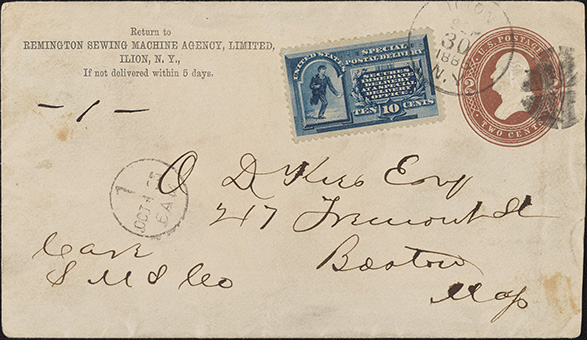 Return to
REMINGTON SEWING MACHINE AGENCY, LIMITED,
ILION, N. Y.,
If not delivered within 5 days.
-1-
UNITED STATES
SPECIAL
POSTAL DELIVERY
SECURES
IMMEDIATE
DELIVERY
AT A SPECIAL
DELIVERY
OFFICE
TEN 10 CENTS
ILION
SEP
30
188
N.Y.
U.S. POSTAGE
2 2
TWO CENTS
1
OCT 1
8 AM
O D
Esq
217 Tremont St
Boston
Mass
Care
S M S Co